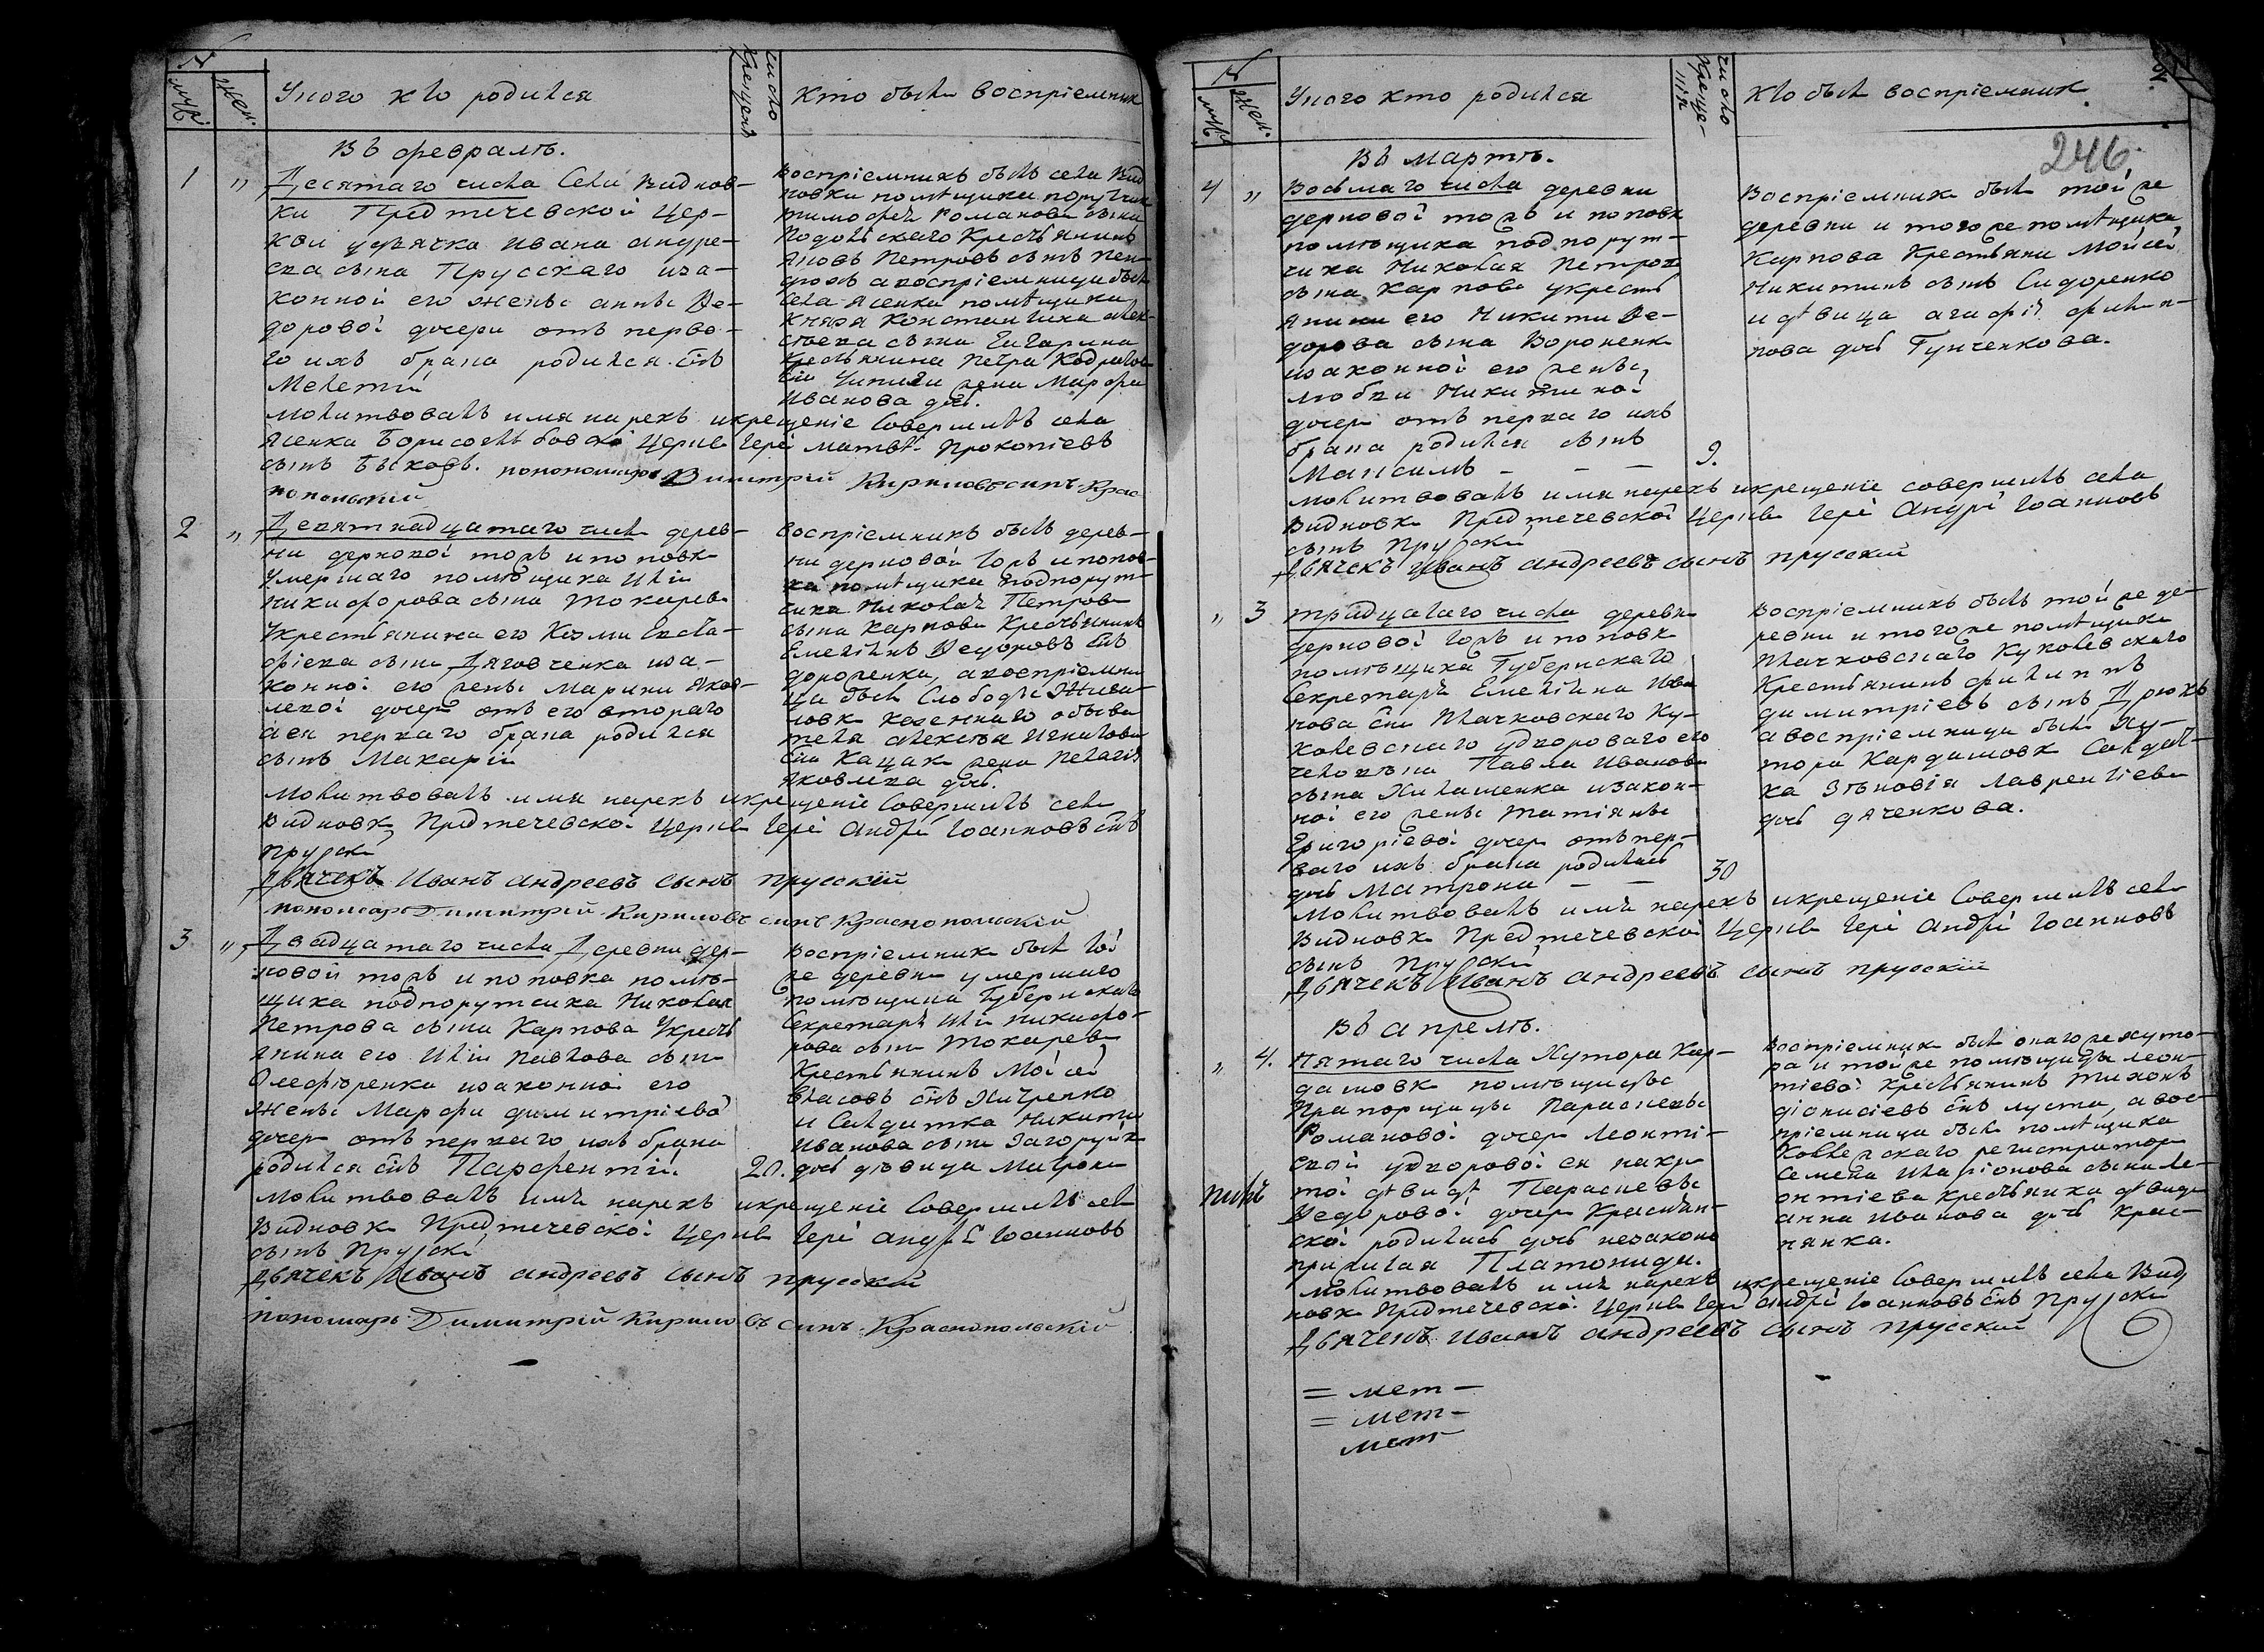 N
муж.
жен.
У кого кто родился
число
крещенія
Кто былъ воспріемникъ
Въ февралѣ.
1 „ Десятаго числа Села Виднов-
ки Предтечевской Цер-
кви у дьячка Ивана Андре-
ева сына Прусскаго иза-
конной его жены Анны Ѳе-
доровой дочери отъ перва-
го ихъ брака родился сынъ
Мелетій
Воспріемникъ былъ села Вид
новки помѣщика поручика
Тимофея Романова сына
Подольскаго Крестьянинъ
Яковъ Петровъ сынъ
а воспріемница была
села Ясенка помѣщика
Князя Константина Алек-
сѣева сына Гагарина
Крестьянина Петра
жена Марфа
Иванова дочь.
молитвовалъ имя нарекъ и крещеніе Совершилъ села
Ясенка Борисоглѣбовской Церкви Іерей Матвѣй Прокопіевъ
сынъ Быковъ. пономарь Димитрій Кириловъ сынъ Крас
нопольскій
2 „ Девятнадцатаго числа дерев-
ни дерновой тожъ и поповки
Умершаго помѣщика Ильи
Никифорова сына Токарева
У крестьянина его Козмы Евста-
фіева сына Дяговченка иза-
конной его жены Марины Яков-
левой дочери отъ его втораго
а ея перваго брака родился
сынъ Макарій
Воспріемникъ былъ дерев-
ни дерновой тожъ и попов-
ка помѣщика подпорут-
чика Николая Петрова
сына Карпова Крестьянинъ
Емеліянъ Ѳедоровъ сынъ
а воспріемни
ца была Слободы Жива-
новки казеннаго обыва
теля Алексѣя Игнатова
сына Кацак жена Пелагія
Яковлева дочь.
Молитвовалъ имя нарекъ и крещеніе Совершилъ села
Видновки Предтечевской Церкви Іерей Андрей Іоанновъ сынъ
Прусскій
Дьячекъ Иванъ Андреевъ сынъ Прусскій
пономарь Димитрій Кириловъ сынъ Краснопольскій
3 „ Двадцатаго числа Деревни дер-
новой тожъ и поповка помѣ-
щика подпорутчика Николая
Петрова сына Карпова У кресть
янина его Ильи Павлова сына
Олефиренка изаконной его
жены Марфы Димитріевой
дочери отъ перваго ихъ брака
родился сынъ Парфентій.
20.
Воспріемникъ былъ той
же деревни умершаго
помѣщика Губернскаго
Секретаря Ильи Никифо-
рова сына Токарева
Крестьянинъ Мойсей
Власовъ сынъ
и Салдатка Никиты
Иванова сына Загоруйка
дочь дѣвица Матрона
Молитвовалъ имя нарекъ и крещеніе Совершилъ села
Видновки Предтечевской Церкви Іерей Андрей Іоанновъ
сынъ Прусскій
Дьячекъ Иванъ Андреевъ сынъ Прусскій
Пономарь Димитрій Кириловъ сынъ Краснопольскій
N
муж.
жен.
У кого кто родился
число
креще-
нія
Кто былъ воспріемник.
246.
Въ Мартѣ.
4 „ Восьмаго числа деревни
дерновой тожъ и поповки
помѣщика подпорут-
чика Николая Петрова
сына Карпова у кресть
янина его Никиты Ѳе-
дорова сына Вороненка
изаконной его жены
Любви Никитиной
дочери отъ перваго ихъ
брака родился сынъ
Максимъ — — — 9.
Воспріемникъ былъ той же
деревни и тогоже помѣщика
Карпова Крестьянин Мойсей
Никитинъ сынъ Сидоренко
и дѣвица Агафія Филип-
пова дочь Гунченкова.
молитвовалъ имя нарекъ и крещеніе совершилъ села
Видновки Предтечевской Церкви Іерей Андрей Іоанновъ
сынъ Прусскій
Дьячекъ Иванъ Андреевъ сынъ Прусскій
„ 3 Традцатаго числа деревни
дерновой тожъ и поповки
помѣщика Губернскаго
Секретаря Емеліяна Ива
нова сына Плачковскаго Ку-
колевскаго у двороваго его
человека Павла Иванова
сына Хилашенка изакон-
ной его жены Татіяны
Григоріевой дочери отъ пер-
ваго ихъ брака родилась
дочь Матрона — — 30
Воспріемникъ былъ той же де-
ревни и тогоже помѣщика
Плачковскаго Куколевскаго
Крестьянинъ Филиппъ
Димитріевъ сынъ Дрюкъ
а воспріемница была Ху-
тора Кардашовки Салдат-
ка Зѣновія Лаврентіева
дочь Дяченкова.
Молитвовалъ имя нарекъ и крещеніе Совершилъ села
Видновки Предтечевской Церкви Іерей Андрей Іоанновъ
сынъ Прусскій
Дьячекъ Иванъ Андреевъ сынъ Прусскій
Въ Апрелѣ.
„ 4. Пятаго числа Хутора Кар-
дашовки помѣщицы
Прапорщицы Парасковьи
Романовой дочери Леонті-
евой у дворовой ея
дѣвицы Парасковьи
Ѳедоровой дочери Краснян-
ской родилась дочь незаконо
прижитая Платонида.
Воспріемник былъ онагоже хуто-
ра и тойже помѣщицы Леон-
тіевой крестьянинъ Тихонъ
Діонисіевъ сынъ Луста, а вос-
пріемница была помѣщика
регистратора
Семена Иларіонова сына Ле-
онтіева крестьянка дѣвица
Анна Иванова дочь Крас-
нянка.
Молитвовалъ имя нарекъ и крещеніе Совершилъ села Вид
новки Предтечевской Церкви Іерей Андрей Іоанновъ сынъ Прусскій
Дьячекъ Иванъ Андреевъ сынъ Прусскій
= мет —
= мет —
мет